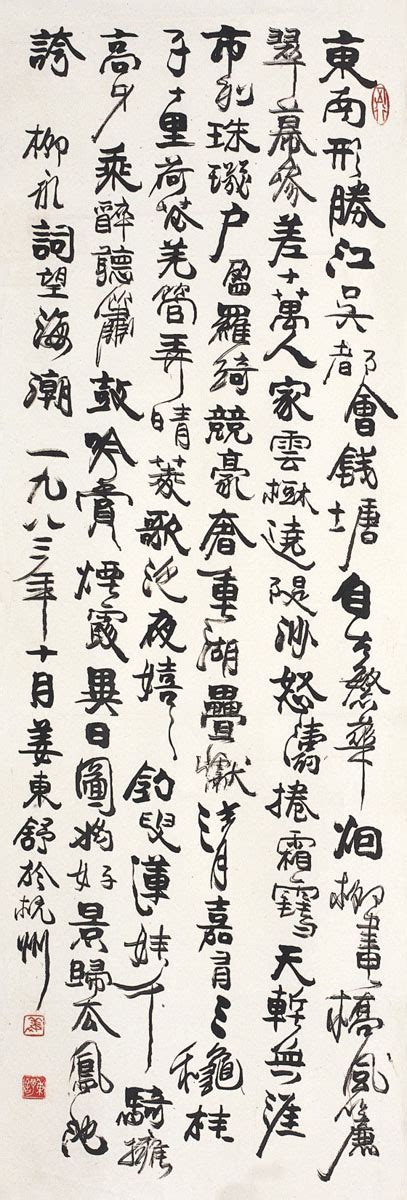 東南形勝江吳都會錢塘自古繁華烟柳畫橋風簾
翠幕參差十萬人家雲樹遶隄沙怒濤捲霜雪天塹無涯
市列珠璣户盈羅綺競豪奢重湖疊巘清嘉有三龝桂
子十里荷花羌管弄晴菱歌泛夜嬉々釣叟蓮娃千騎擁
高牙乘醉聽簫鼓吟賞煙霞異日圖將好景歸去鳳池
誇 柳永詞望海潮 一九八三年十月姜東舒於杭州